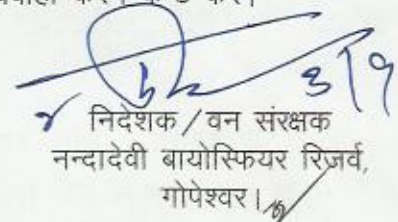 करें।
3/9
निदेशक/वन संरक्षक
नन्दादेवी बायोस्फियर रिजर्व,
गोपेश्वर।